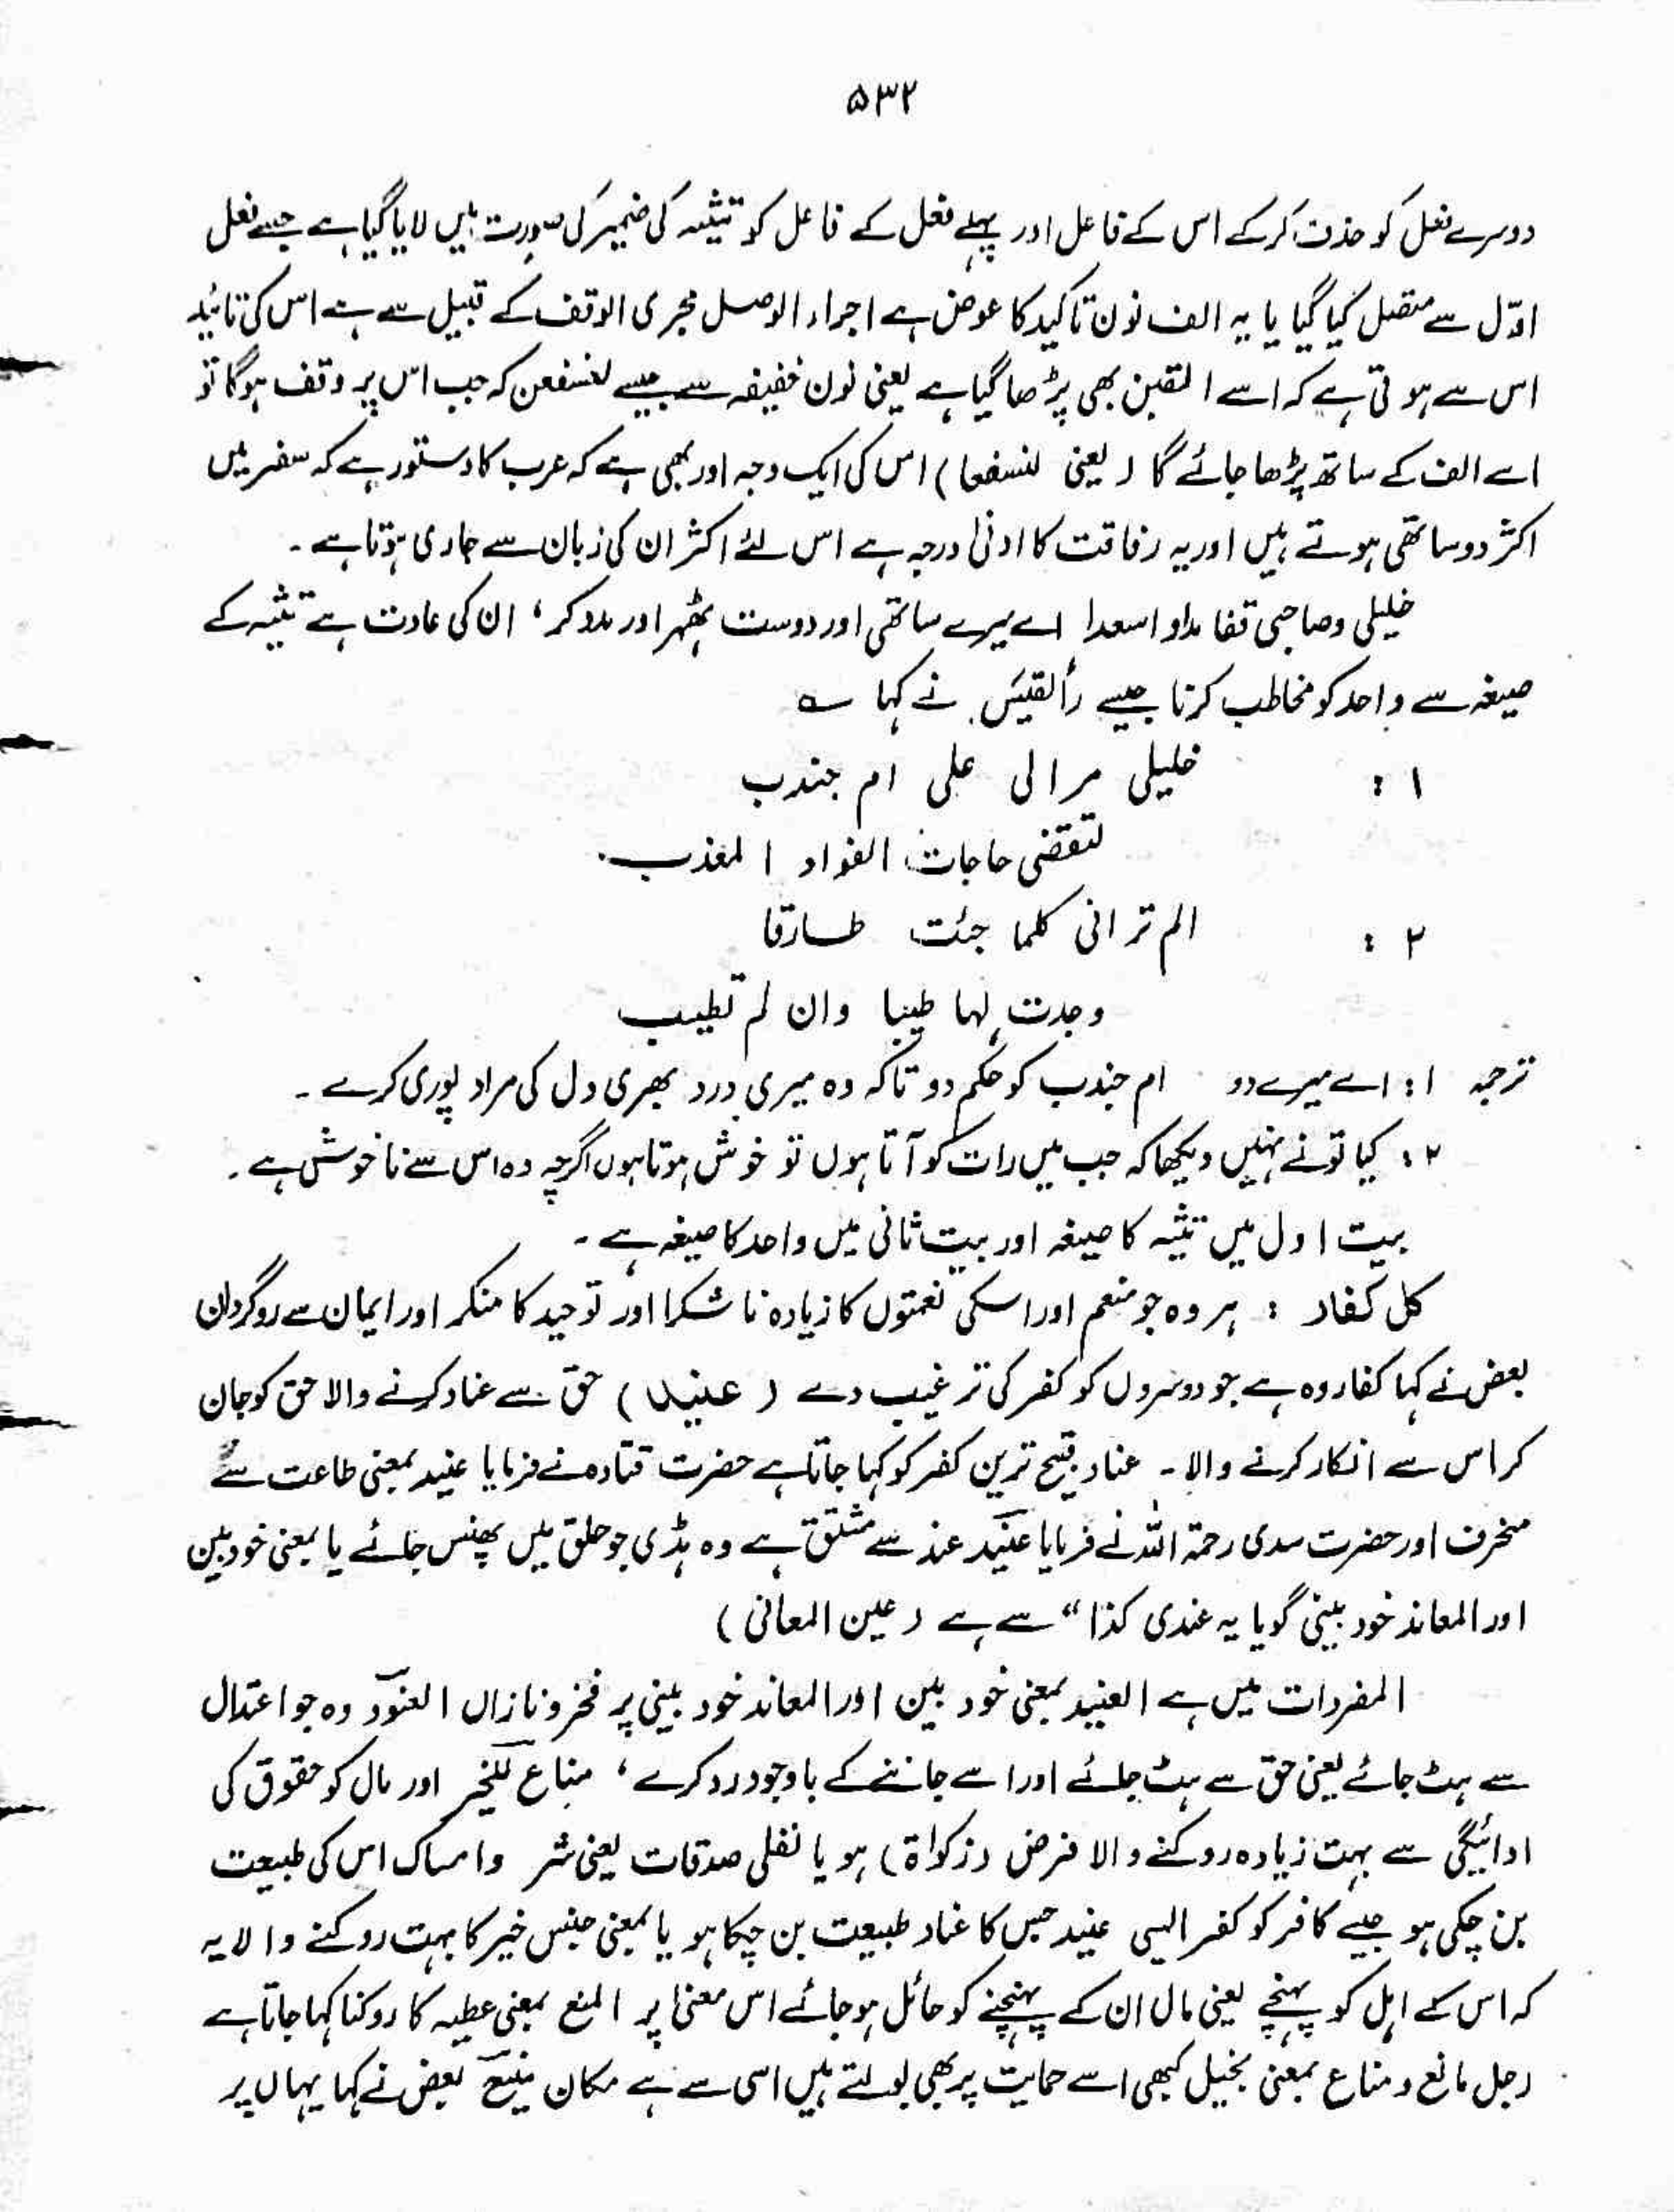 ۵۳۲
دوسرے فعل کو حذف کرکے اس کے فاعل اور پہلے فعل کے فاعل کو تثنیہ کی ضمیر کی صورت میں لایا گیا ہے جسے فعل
اوّل سے متصل کیا گیا یا یہ الف نون تاکید کا عوض ہے اجراء الوصل مجری الوقف کے قبیل سے ہے اس کی تائید
اس سے ہوتی ہے کہ اسے القین بھی پڑھا گیا ہے یعنی نون خفیفہ سے جیسے لنسفعن کہ جب اس پر وقف ہوگا تو
اسے الف کے ساتھ پڑھا جائے گا (یعنی لنسفعا) اس کی ایک وجہ اور بھی ہے کہ عرب کا دستور ہے کہ سفر میں
اکثر دو ساتھی ہوتے ہیں اور یہ رفاقت کا ادنیٰ درجہ ہے اس لئے اکثر ان کی زبان سے جاری ہوتا ہے ۔
خلیلی وصاحبی قفا واسعدا اے میرے ساتھی اور دوست ٹھہر اور مدد کر، ان کی عادت ہے تثنیہ کے
صیغہ سے واحد کو مخاطب کرنا جیسے رأالقیس نے کہا ؎
۱ : خلیلی مرا لی علی ام جندب
لتقضی حاجات الفواد المعذب
۲ : الم تر انی کلما جئت طارقا
وجدت لہا طیبا وان لم تطیب
ترجمہ ۱: اے میرے دو ام جندب کو حکم دو تاکہ وہ میری درد بھری دل کی مراد پوری کرے ۔
۲: کیا تو نے نہیں دیکھا کہ جب میں رات کو آتا ہوں تو خوش ہوتا ہوں اگرچہ وہ اس سے ناخوش ہے ۔
بیت اول میں تثنیہ کا صیغہ اور بیت ثانی میں واحد کا صیغہ ہے ۔
کل کفار : ہر وہ جو منعم اور اسکی نعمتوں کا زیادہ ناشکرا اور توحید کا منکر اور ایمان سے روگردان
بعض نے کہا کفار وہ ہے جو دوسروں کو کفر کی ترغیب دے (عنید) حق سے عناد کرنے والا حق کو جان
کر اس سے انکار کرنے والا ۔ عناد قبیح ترین کفر کو کہا جاتا ہے حضرت قتادہ نے فرمایا عنید بمعنی طاعت سے
منحرف اور حضرت سدی رحمۃ اللہ نے فرمایا عنید عند سے مشتق ہے وہ ہڈی جو حلق میں پھنس جائے یا بمعنی خود بین
اور المعاند خود بینی گویا یہ عندی کذا“ سے ہے (عین المعانی)
المفردات میں ہے العنید بمعنی خود بین اور المعاند خود بینی پر فخر و نازاں العنود وہ جو اعتدال
سے ہٹ جائے یعنی حق سے ہٹ جائے اور اسے جاننے کے باوجود رد کرے، مناع للخیر اور مال کو حقوق کی
ادائیگی سے بہت زیادہ روکنے والا فرض (زکواۃ) ہو یا نفلی صدقات یعنی شر وامساک اس کی طبیعت
بن چکی ہو جیسے کافر کو کفر ایسی عنید جس کا عناد طبیعت بن چکا ہو یا بمعنی جنس خیر کا بہت روکنے والا یہ
کہ اس کے اہل کو پہنچے یعنی مال ان کے پہنچنے کو حائل ہو جائے اس معنیٰ پر المنع بمعنی عطیہ کا روکنا کہا جاتا ہے
رجل مانع و مناع بمعنی بخیل کبھی اسے حمایت پر بھی بولتے ہیں اسی سے ہے مکان منیع بعض نے کہا یہاں پر